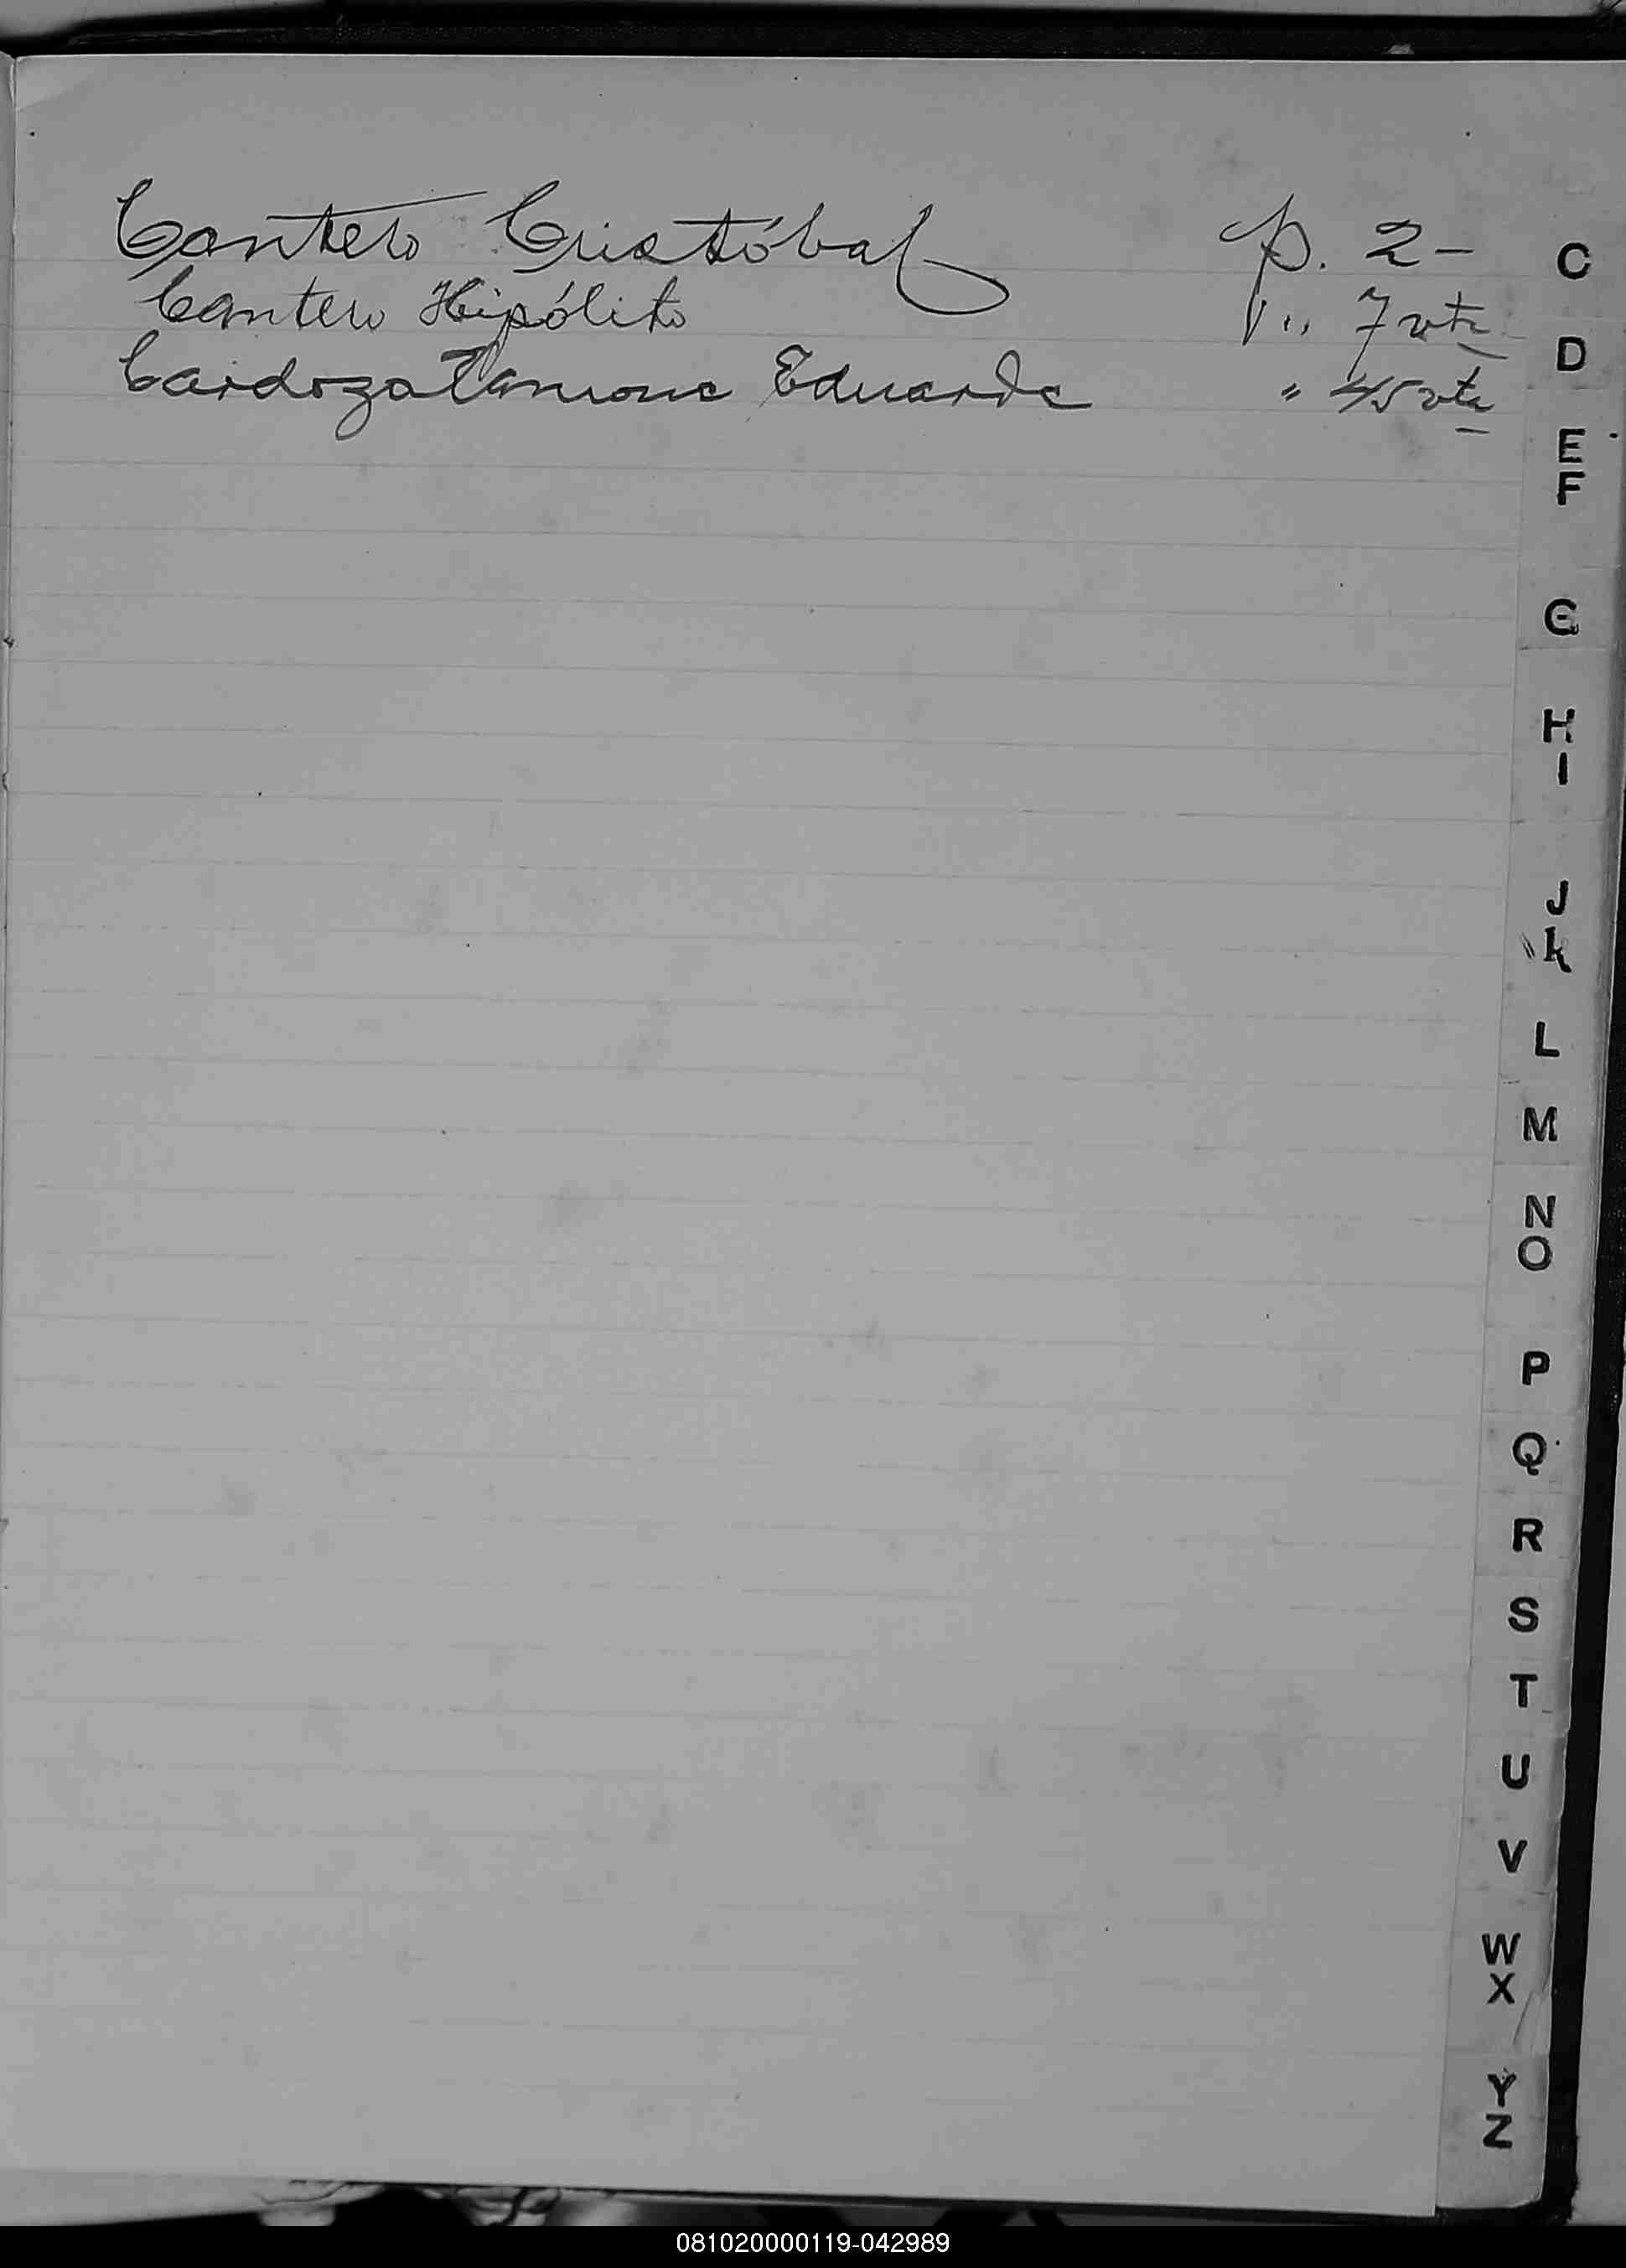 Cantero Cristóbal p. 2-
Cantero Hipólito p. " 7 vta
Cardozo Eduardo " 45 vta
C
D
E
F
G
H
I
J
K
L
M
N
O
P
Q
R
S
T
U
V
W
X
Y
Z
081020000119-042989